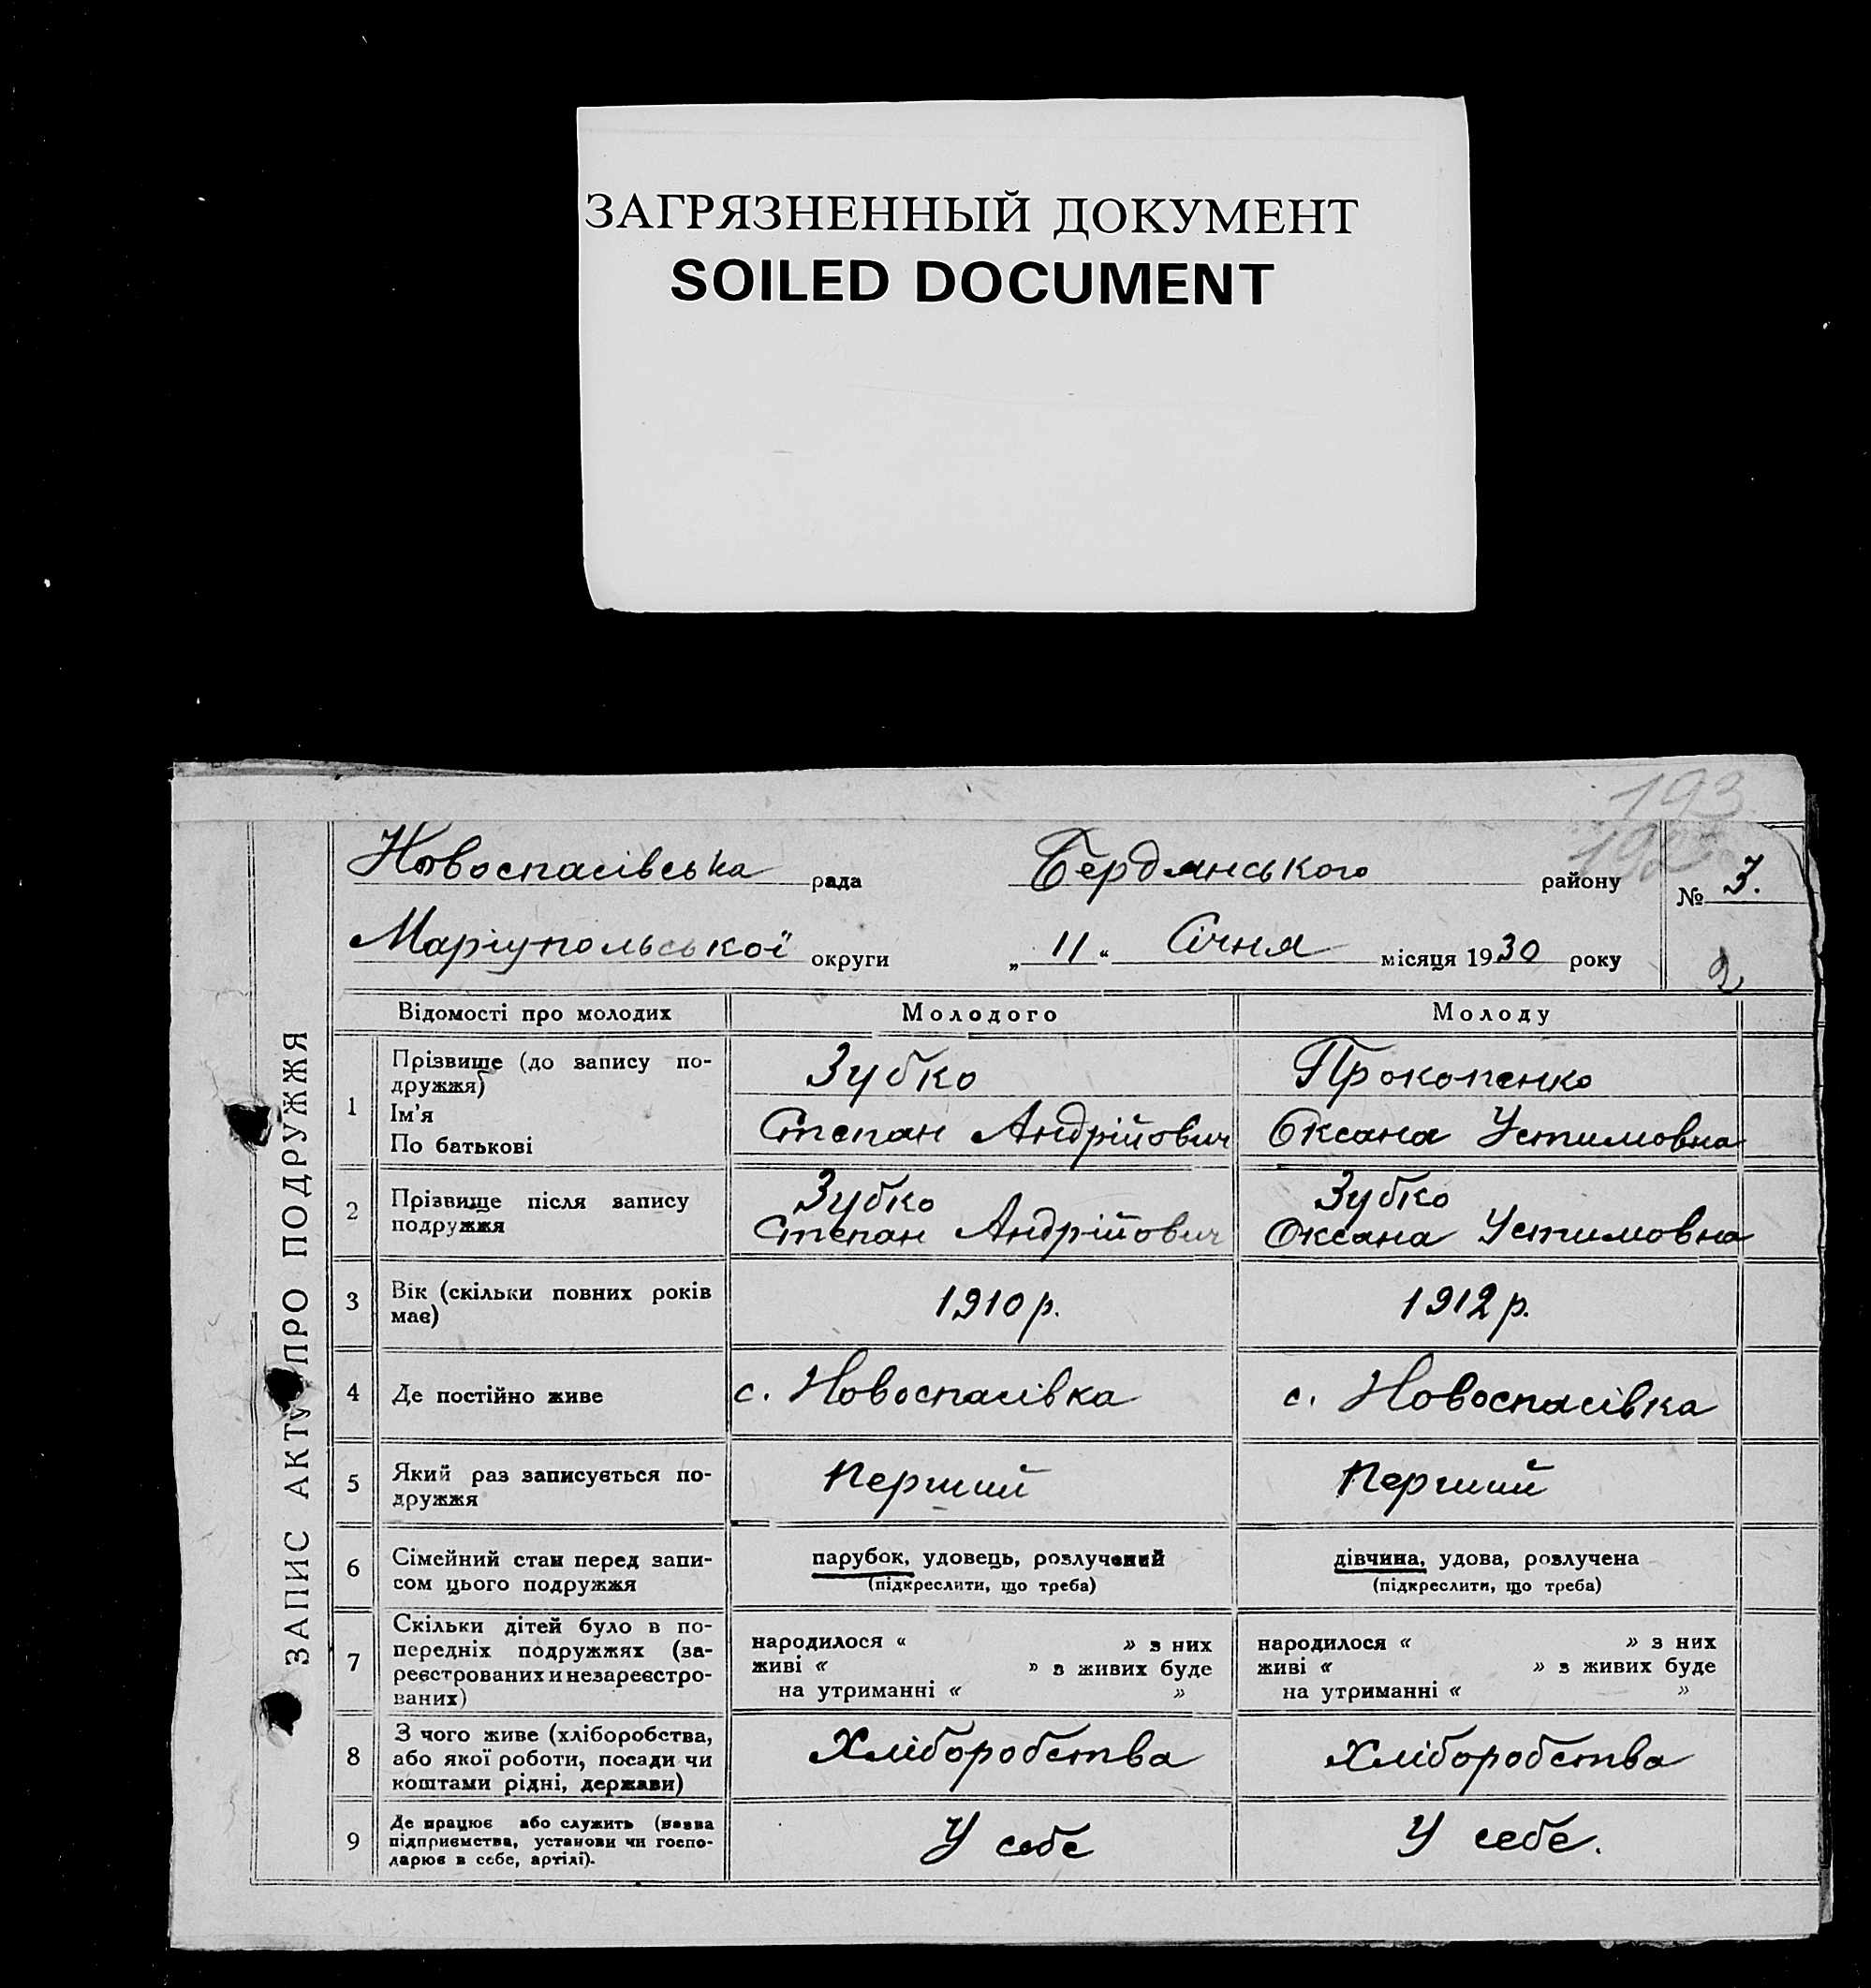 ЗАГРЯЗНЕННЫЙ ДОКУМЕНТ
SOILED DOCUMENT
193
192
Новоспасівська рада Бердянського району № 3.
Маріупольської округи „ 11 “ Січня місяця 1930 року
2
ЗАПИС АКТУ ПРО ПОДРУЖЖЯ
Відомості про молодих Молодого Молоду
1 Прізвище (до запису по-
дружжя) Зубко Прокопенко
Ім’я
По батькові Степан Андрійович Оксана Устимовна
2 Прізвище після запису
подружжя
Зубко
Степан Андрійович
Зубко
Оксана Устимовна
3 Вік (скільки повних років
має) 1910 р. 1912 р.
4 Де постійно живе с. Новоспасівка с. Новоспасівка
5 Який раз записується по-
дружжя Перший Перший
6 Сімейний стан перед запи-
сом цього подружжя
парубок, удовець, розлучений
(підкреслити, що треба)
дівчина, удова, розлучена
(підкреслити, що треба)
7 Скільки дітей було в по-
передніх подружжях (за-
реєстрованих и незареєстро-
ваних)
народилося « » з них
живі « » з живих буде
на утриманні « »
народилося « » з них
живі « » з живих буде
на утриманні « »
8 З чого живе (хліборобства,
або якої роботи, посади чи
коштами рідні, держави)
Хліборобства Хліборобства
9 Де працює або служить (назва
підприємства, установи чи госпо-
дарює в себе, артілі).
У себе У себе.